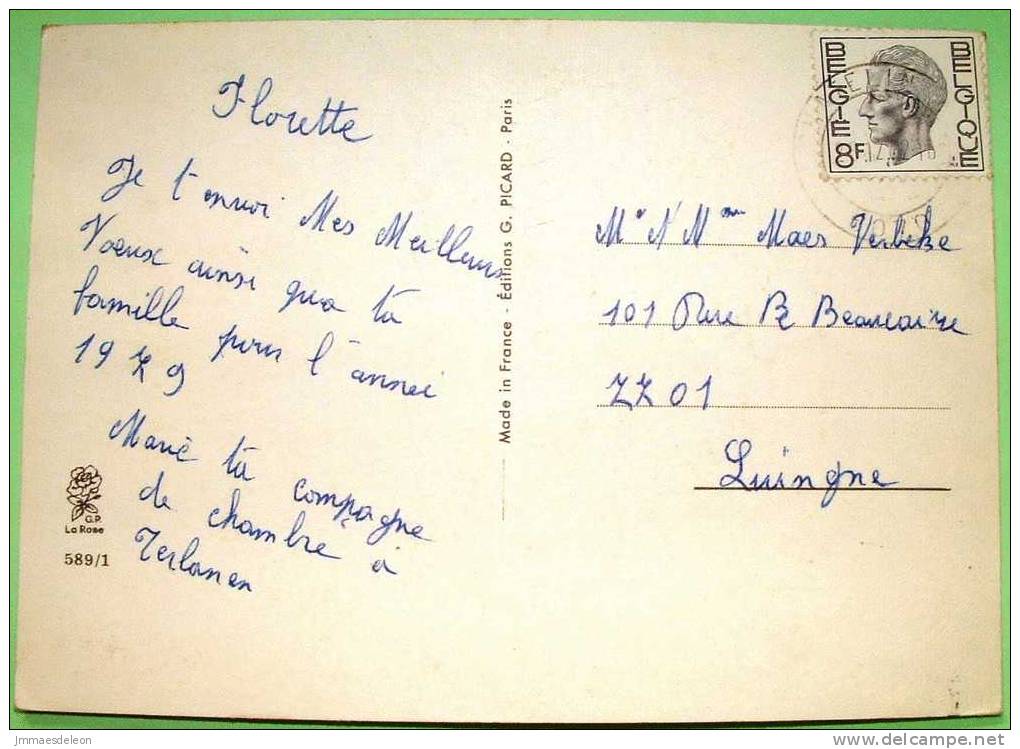 Florette
Je t'envoi Mes Meilleurs
Voeux ainsi qua ta
famille pour l'année
1979
Marie ta compagne
de chambre à
Terlanen
G.P.
La Rose
589/1
Made in France - Éditions G. PICARD - Paris
BELGIE BELGIQUE
8F
Mr & Mme Maes Verbeke
101 Rue De Beaucaire
7701
Luingne
jmmaesdeleon
www.delcampe.net